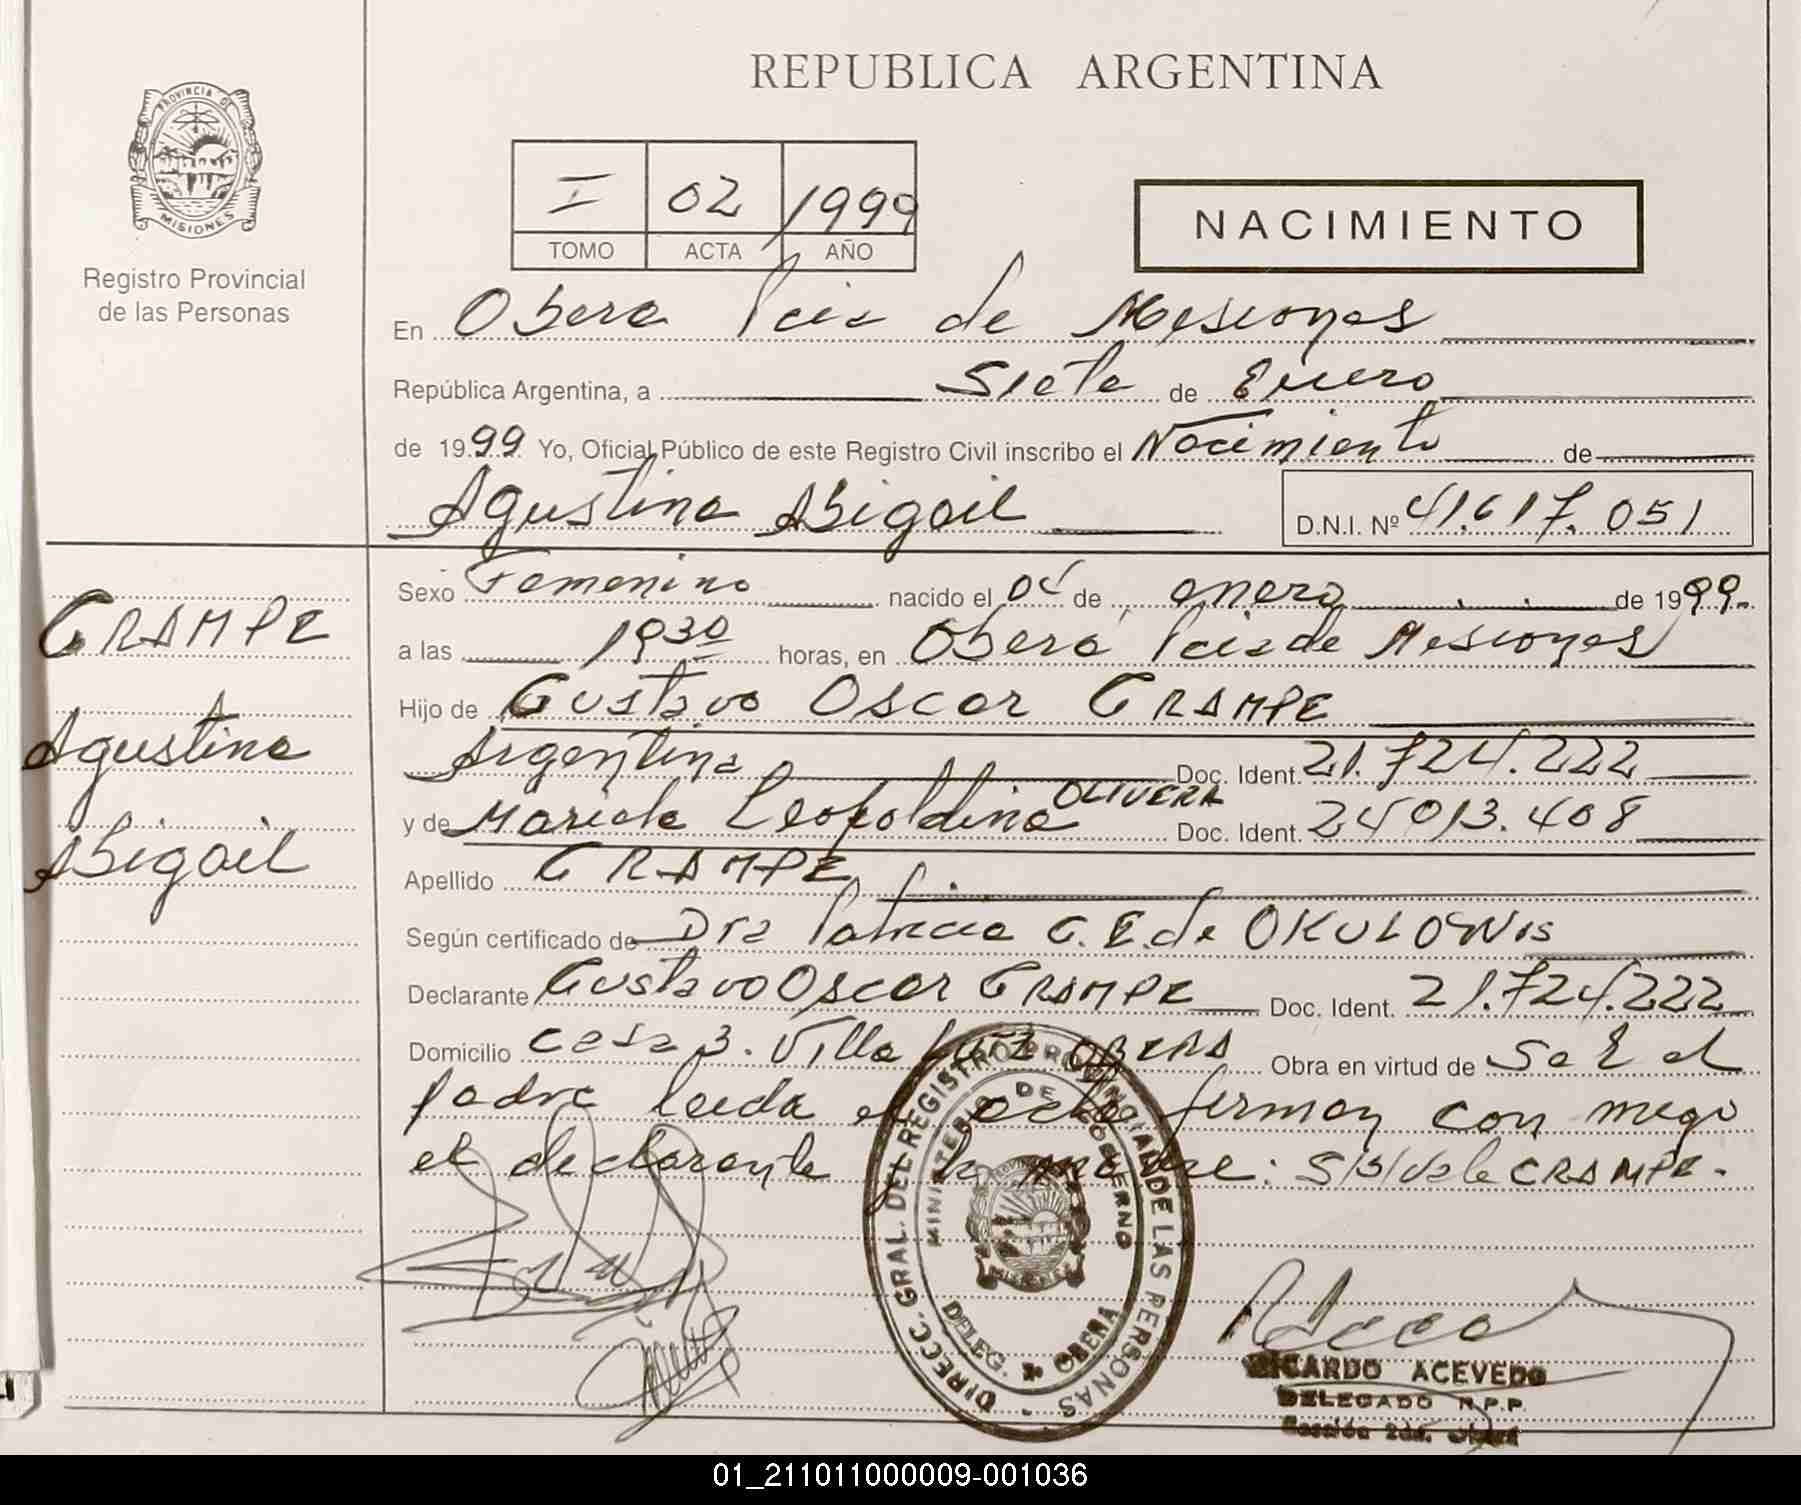 REPUBLICA ARGENTINA
PROVINCIA DE
MISIONES
Registro Provincial
de las Personas
I 02 1999
TOMO ACTA AÑO
NACIMIENTO
En Obera Pcia de Misiones
República Argentina, a Siete de Enero
de 1999 Yo, Oficial Público de este Registro Civil inscribo el Nacimiento de
Agustina Abigail D.N.I. Nº 41.617.051
CRAMPE
Agustina
Abigail
Sexo Femenino nacido el 04 de enero de 1999
a las 19 30 horas, en Obera Pcia de Misiones
Hijo de Gustavo Oscar CRAMPE
Argentina Doc. Ident. 21.724.222
y de Mariela Leopoldina OLIVERA Doc. Ident. 24013.408
Apellido CRAMPE
Según certificado de Dra Patricia G. E. de
Declarante Gustavo Oscar CRAMPE Doc. Ident. 21.724.222
Domicilio casa 3. Villa OBERA Obra en virtud de Se E el
padre leida el acta firman con migo
el declarante y la madre: S/S/vale CRAMPE.
DIRECC. GRAL. DEL REGISTRO PROVINCIAL DE LAS PERSONAS
MINISTERIO DE GOBIERNO
MISIONES
DELEG. OBERA
RICARDO ACEVEDO
DELEGADO R.P.P.
Sección 2da. Oberá
01_211011000009-001036